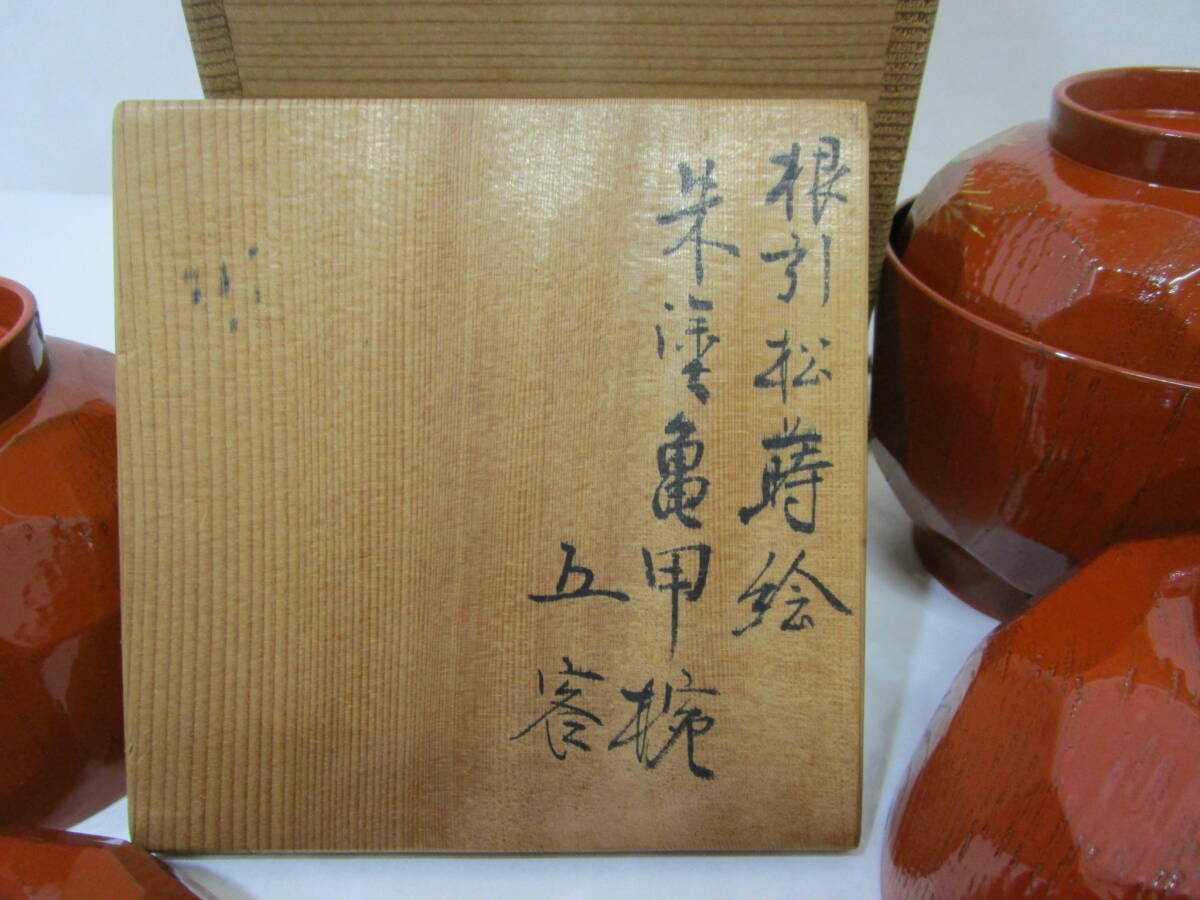 根引松蒔絵
朱塗亀甲椀
五客